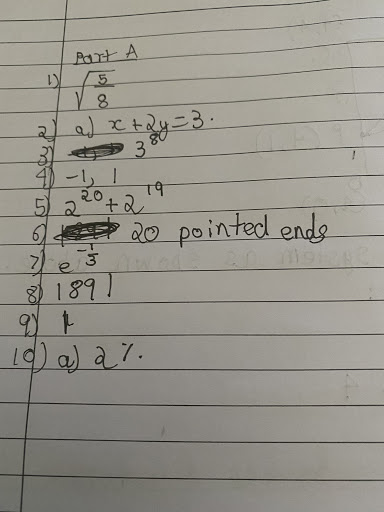 Part A
1) √5/8
2) a) x + 2y = 3.
3) 3^8
4) -1, 1
5) 2^20 + 2^19
6) 20 pointed ends
7) e^-1/3
8) 1891
9) 1
10) a) 2%.